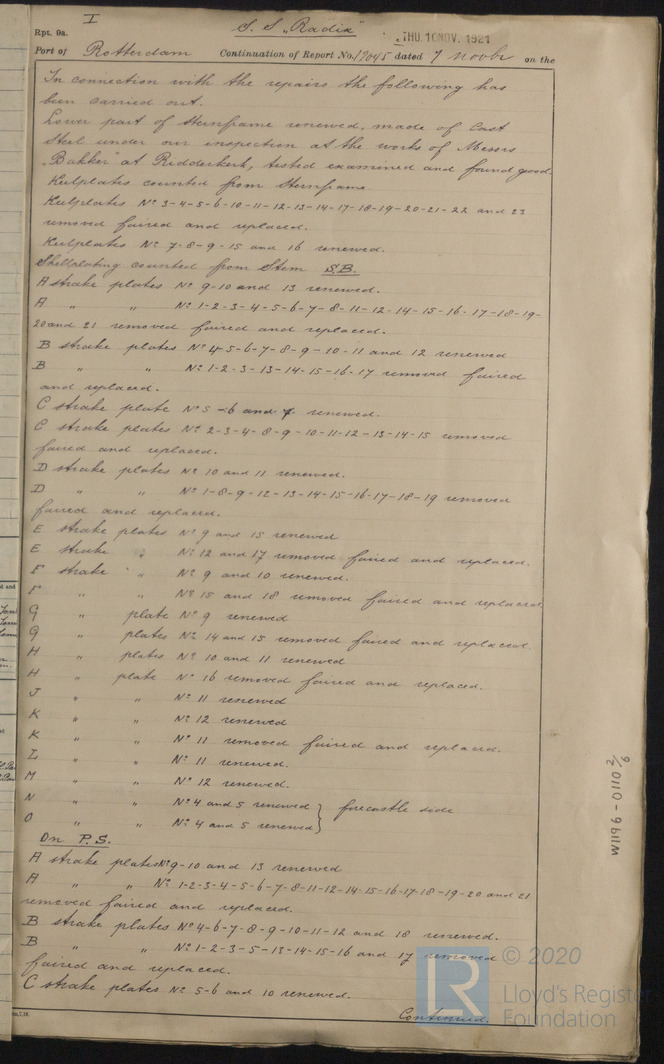 I
S. S. „Radix"
Rpt. 9a.
THU. 10 NOV. 1921
Port of Rotterdam Continuation of Report No. 12045 dated 7 Novbr on the
In connection with the repairs the following has
been carried out.
Lower part of Sternframe renewed, made of Cast
Steel under our inspection at the works of Messrs
„Bakker" at Ridderkerk, tested examined and found good
Keelplates counted from Sternframe
Keelplates No 3-4-5-6-10-11-12-13-14-17-18-19-20-21-22 and 23
removed faired and replaced.
Keelplates No 7-8-9-15 and 16 renewed.
Shellplating counted from Stem S.B.
A strake plates No 9-10 and 13 renewed.
A " " No 1-2-3-4-5-6-7-8-11-12-14-15-16-17-18-19-
20 and 21 removed faired and replaced.
B strake plates No 4-5-6-7-8-9-10-11 and 12 renewed
B " " No 1-2-3-13-14-15-16-17 removed faired
and replaced.
C strake plate No 5-6 and 7 renewed.
C strake plates No 2-3-4-8-9-10-11-12-13-14-15 removed
faired and replaced.
D strake plates No 10 and 11 renewed.
D " " No 1-8-9-12-13-14-15-16-17-18-19 removed
faired and replaced.
E strake plates No 9 and 15 renewed
E strake " No 12 and 17 removed faired and replaced.
F strake " No 9 and 10 renewed.
F " " No 15 and 18 removed faired and replaced
G " plate No 9 renewed
G " plates No 14 and 15 removed faired and replaced.
H " plates No 10 and 11 renewed
H " plate No 16 removed faired and replaced.
J " " No 11 renewed
K " " No 12 renewed
K " " No 11 removed faired and replaced.
L " " No 11 renewed.
M " " No 12 renewed.
N " " No 4 and 5 renewed } forecastle side
O " " No 4 and 5 renewed }
On P.S.
A strake plates No 9-10 and 13 renewed
A " " No 1-2-3-4-5-6-7-8-11-12-14-15-16-17-18-19-20 and 21
removed faired and replaced.
B strake plates No 4-6-7-8-9-10-11-12 and 18 renewed.
B " " No 1-2-3-5-13-14-15-16 and 17 removed
faired and replaced.
C strake plates No 5-6 and 10 renewed.
Continued.
W1196-0110 2/6
© 2020
LR
Lloyd's Register
Foundation